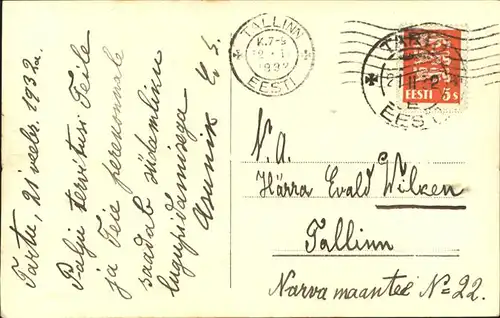 Tartu, 21 veebr. 1932a.
Palju tervitusi Teile
ja Teie perekonnale
saadab südamlinn
lugupidamisega
Asunik
E. S.
TALLINN
K. 7-8
1932
EESTI
TARTU
21 II
EESTI
EESTI 5 s
V. A.
Härra Evald Wilken
Tallinn
Narva maantee № 22.